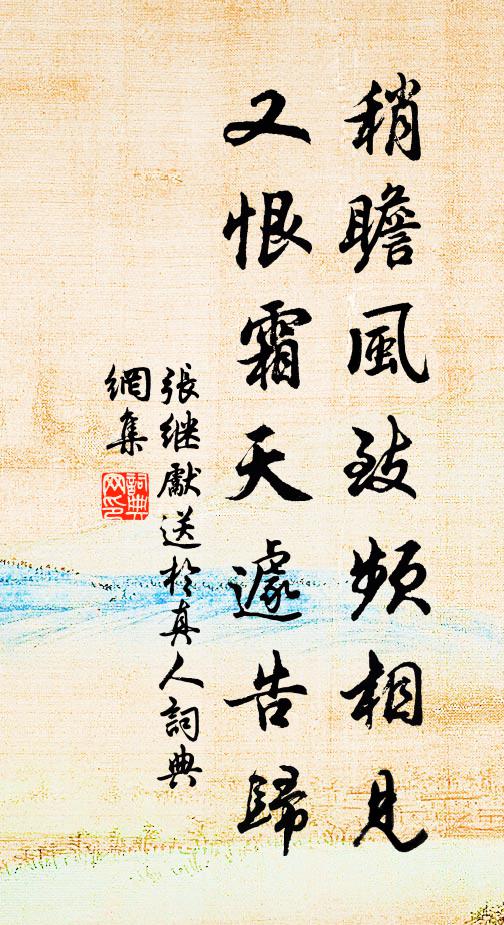 稍瞻風致頻相見
又恨霜天遽告歸
張继獻送於真人詞典
網集
詞典
网印